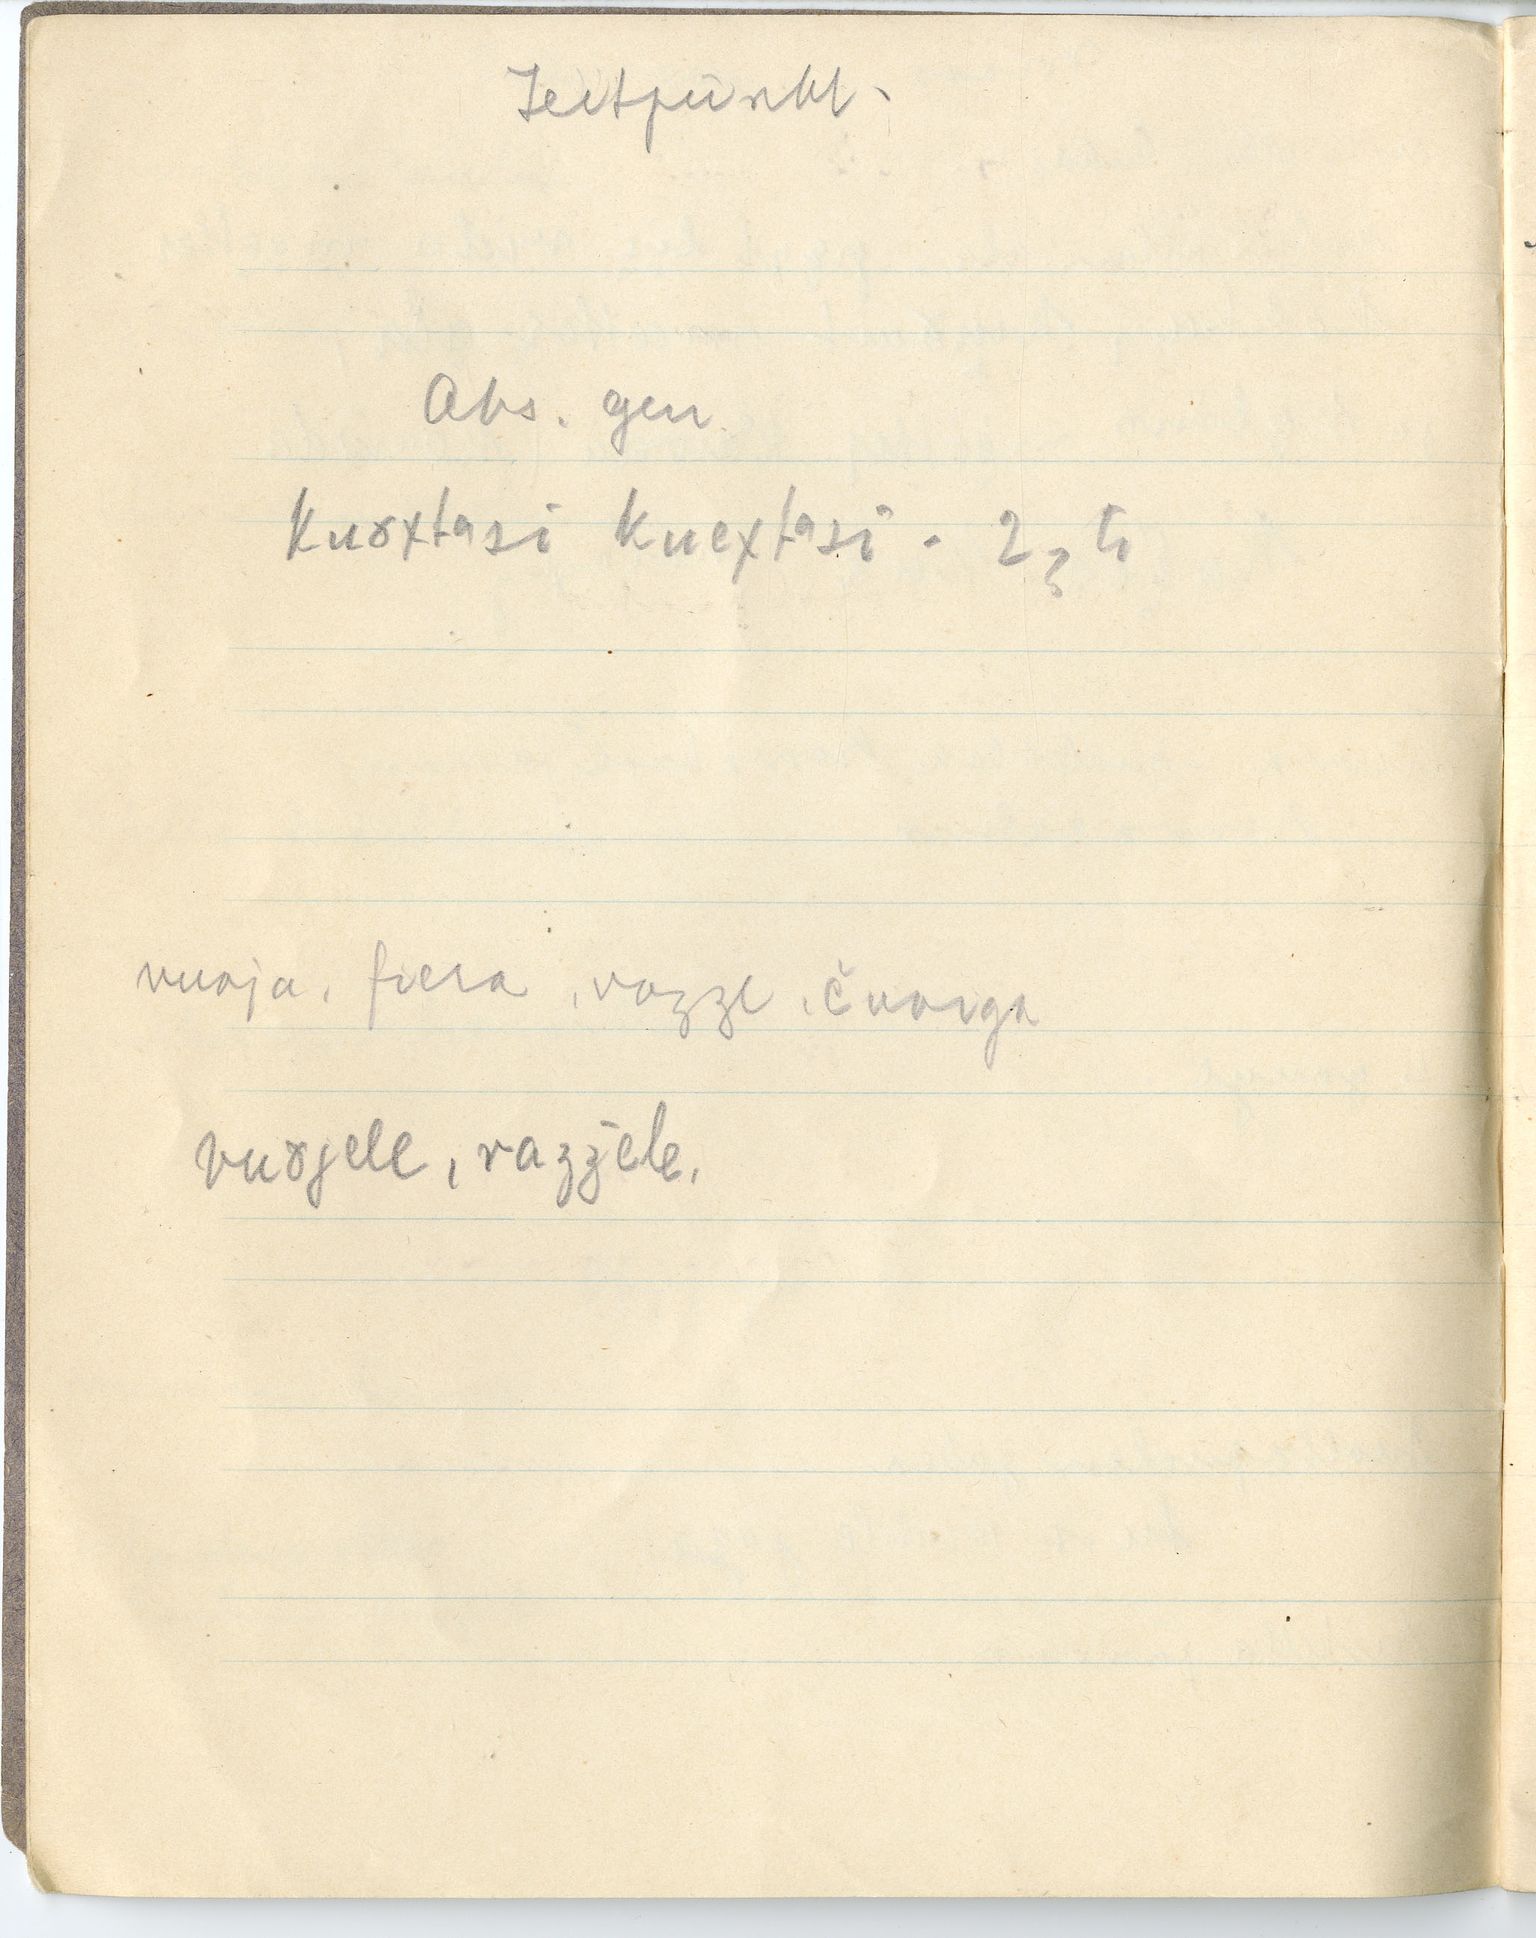 Zeitpunkt.
Abs. gen.
kuoxtasi kuextasi. 2
vuoja, fiera, razze, čuoiga
vuojele, razžele,